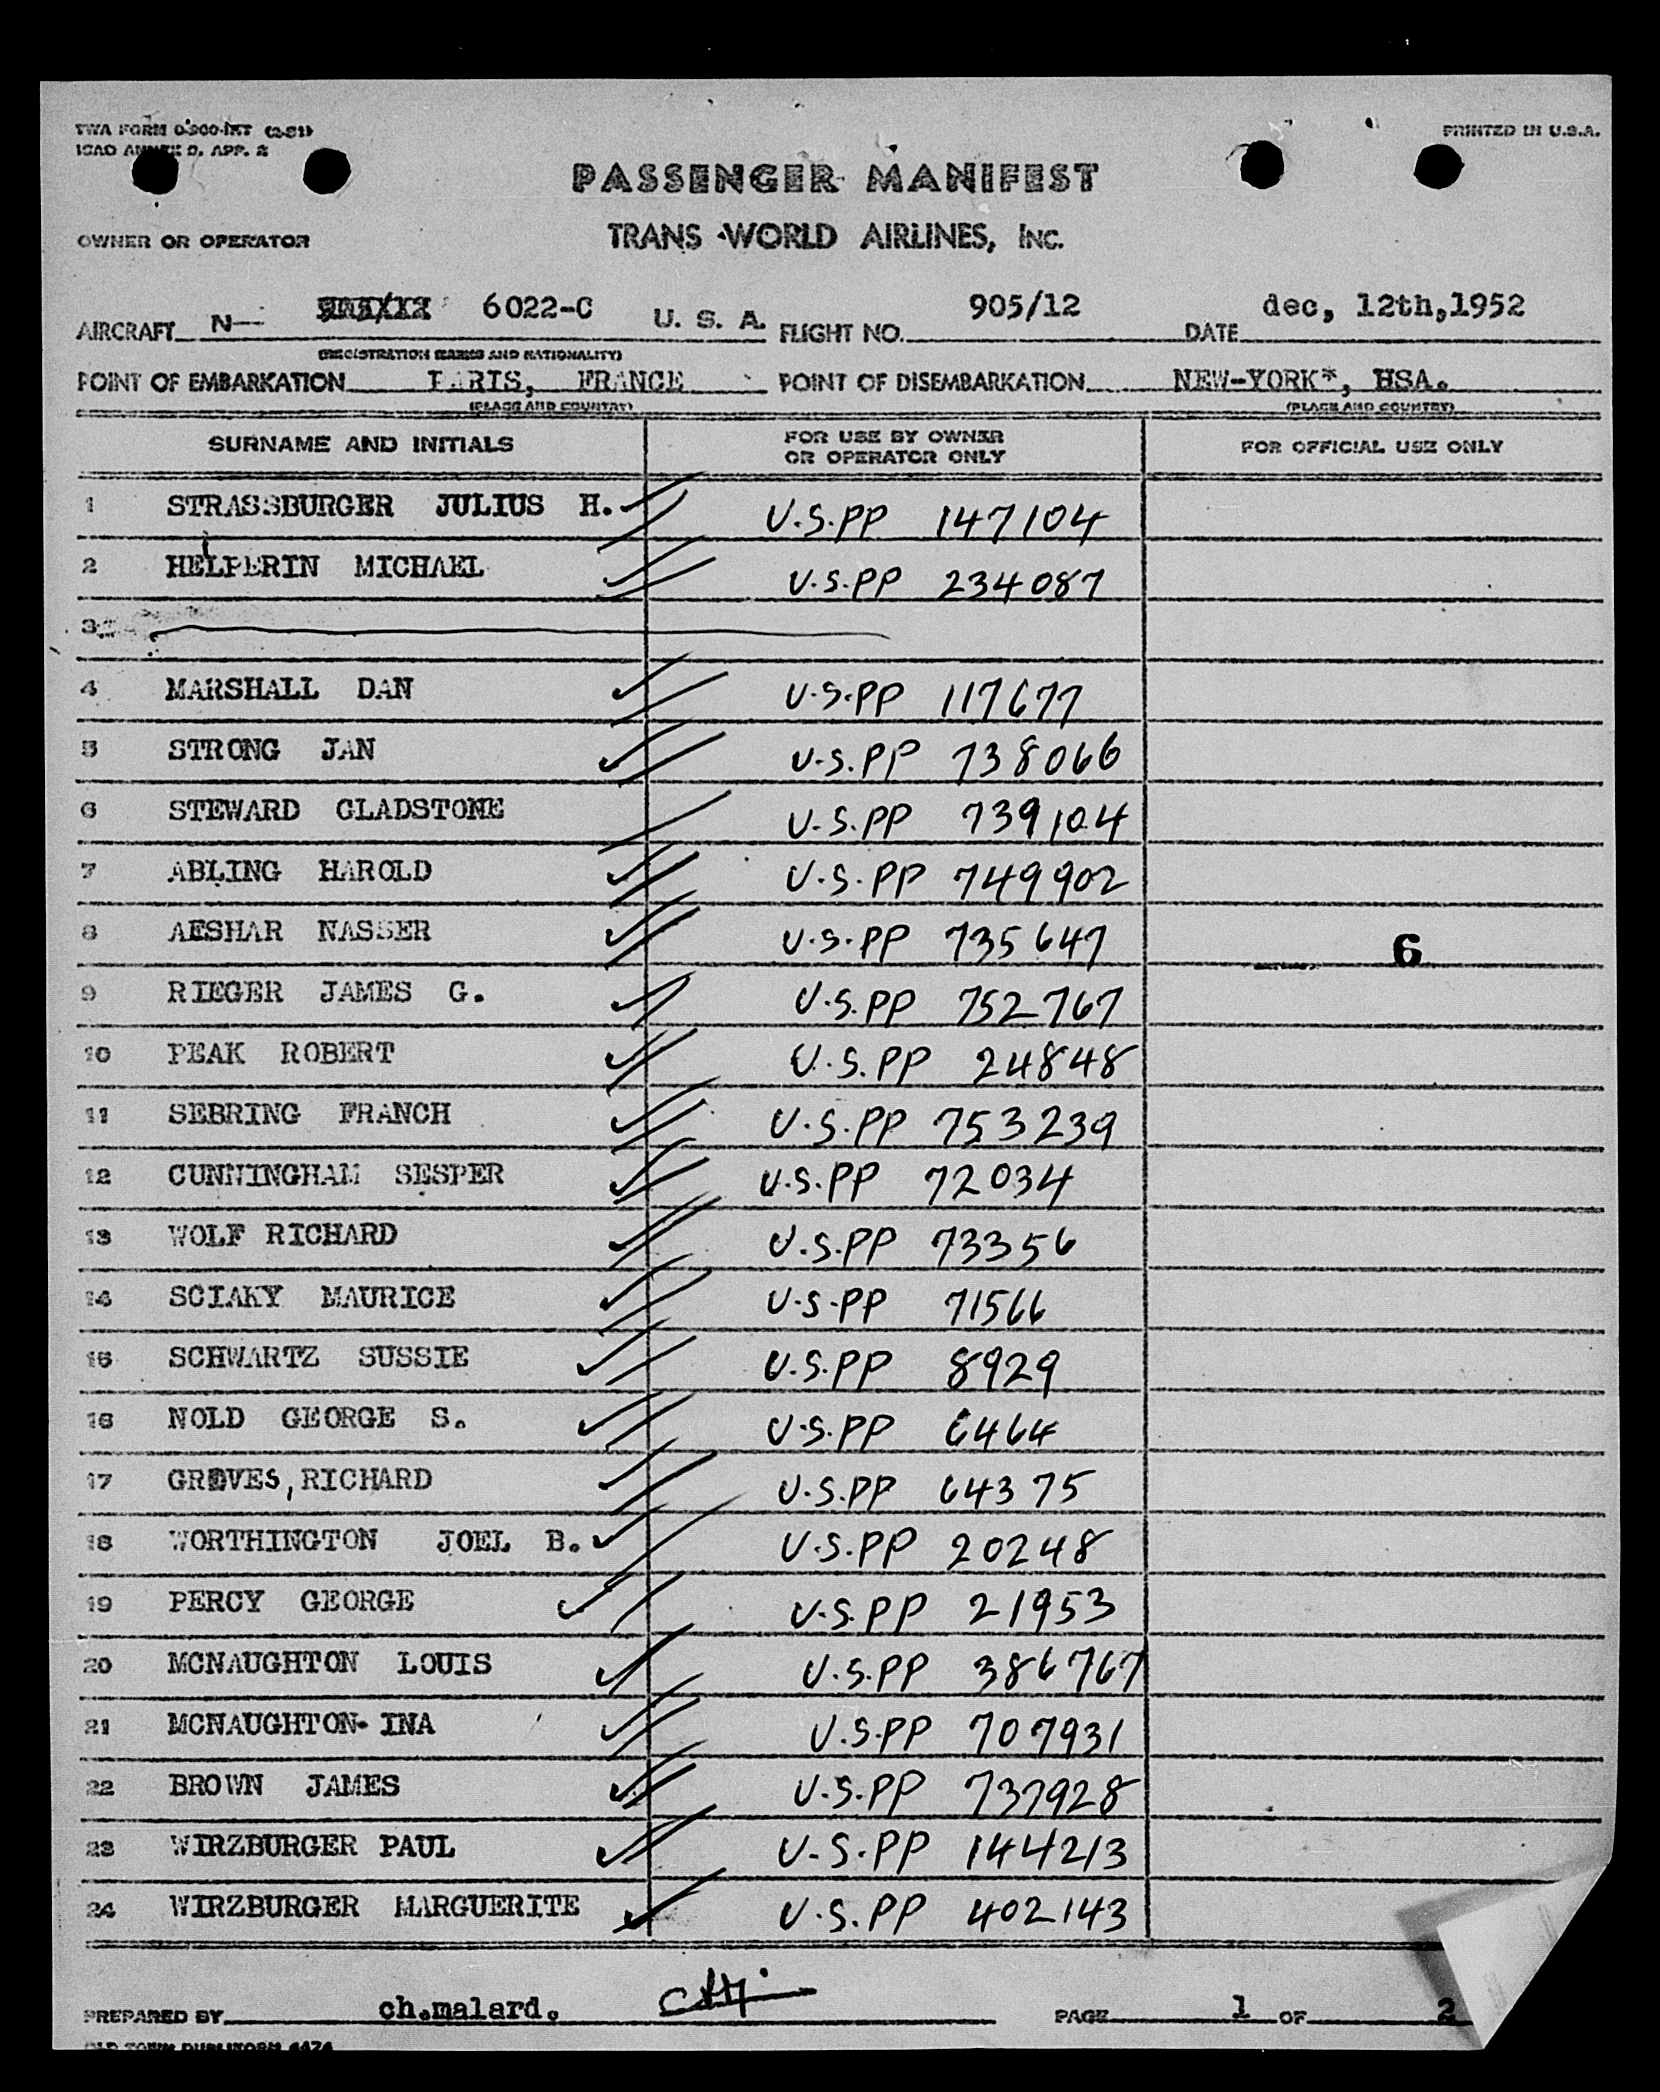 TWA FORM 0-900-INT (2-51)
PRINTED IN U.S.A.
ICAO ANNEX 9, APP. 2
PASSENGER MANIFEST
OWNER OR OPERATOR TRANS WORLD AIRLINES, INC.
AIRCRAFT N— 6022-C U. S. A. FLIGHT NO. 905/12 DATE dec, 12th,1952
(REGISTRATION MARKS AND NATIONALITY)
POINT OF EMBARKATION PARIS, FRANCE POINT OF DISEMBARKATION NEW-YORK*, HSA.
(PLACE AND COUNTRY) (PLACE AND COUNTRY)
SURNAME AND INITIALS FOR USE BY OWNER OR OPERATOR ONLY FOR OFFICIAL USE ONLY
1 STRASSBURGER JULIUS H. U.S.PP 147104
2 HELPERIN MICHAEL U.S.PP 234087
3
4 MARSHALL DAN U.S.PP 117677
5 STRONG JAN U.S.PP 738066
6 STEWARD GLADSTONE U.S.PP 739104
7 ABLING HAROLD U.S.PP 749902
8 AESHAR NASSER U.S.PP 735647 6
9 RIEGER JAMES G. U.S.PP 752767
10 PEAK ROBERT U.S.PP 24848
11 SEBRING FRANCH U.S.PP 753239
12 CUNNINGHAM SESPER U.S.PP 72034
13 WOLF RICHARD U.S.PP 73356
14 SCIAKY MAURICE U.S.PP 71566
15 SCHWARTZ SUSSIE U.S.PP 8929
16 NOLD GEORGE S. U.S.PP 6464
17 GROVES, RICHARD U.S.PP 64375
18 WORTHINGTON JOEL B. U.S.PP 20248
19 PERCY GEORGE U.S.PP 21953
20 MCNAUGHTON LOUIS U.S.PP 386767
21 MCNAUGHTON- INA U.S.PP 707931
22 BROWN JAMES U.S.PP 737928
23 WIRZBURGER PAUL U.S.PP 144213
24 WIRZBURGER MARGUERITE U.S.PP 402143
PREPARED BY ch.malard. PAGE 1 OF 2